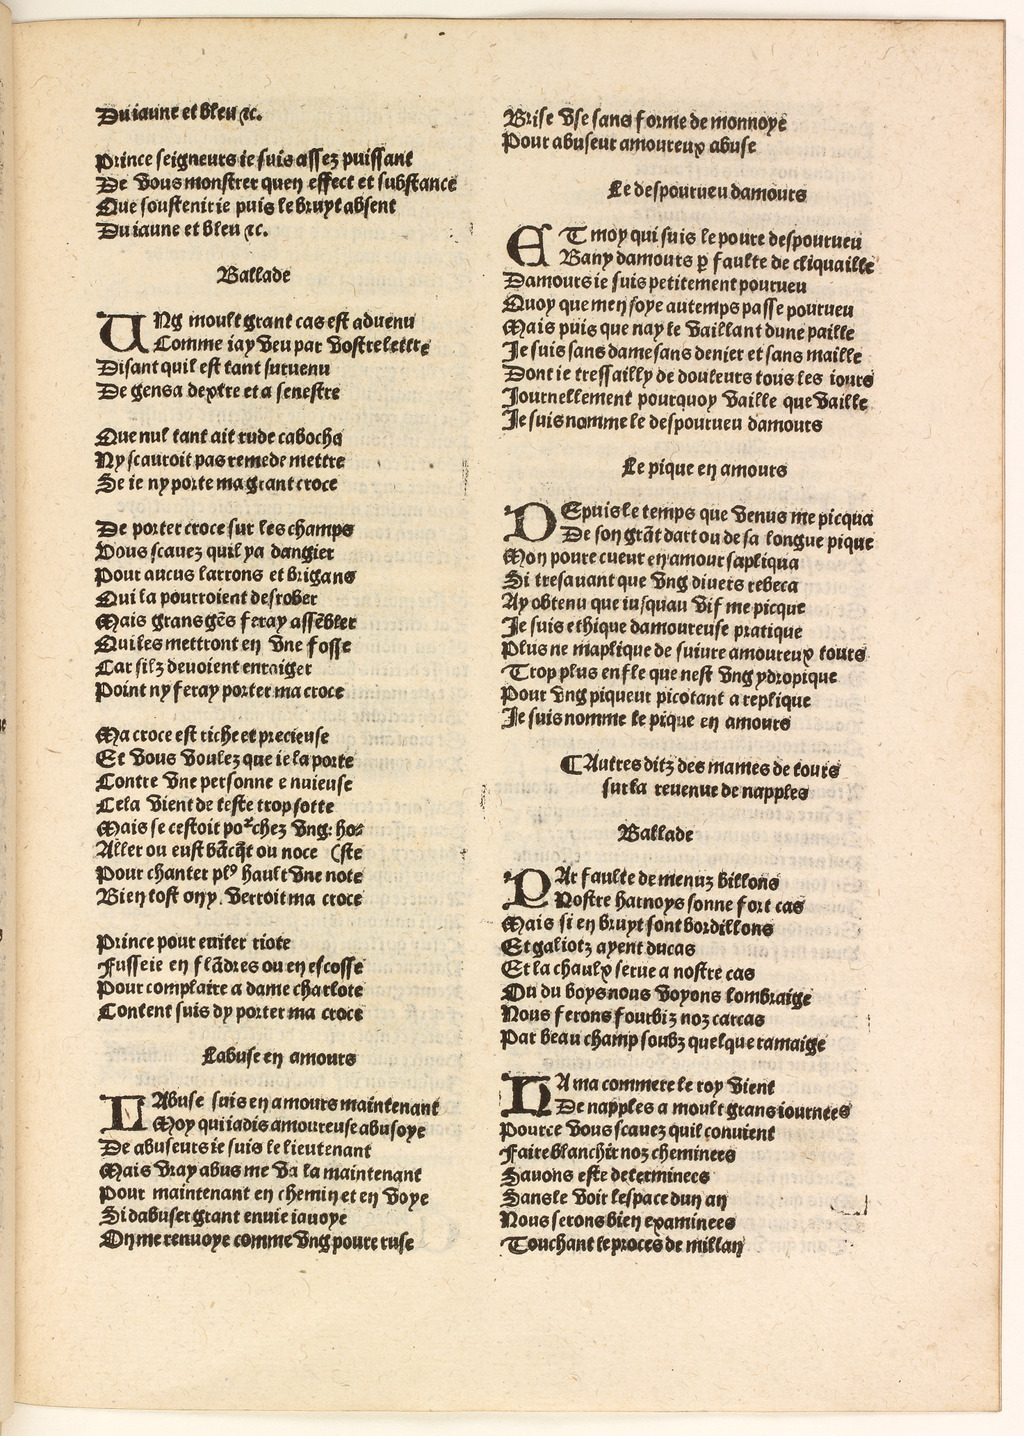 Du iaune et bleu ⁊c.
Prince seigneurs ie suis assez puissant
De vous monstrer quen effect et substance
Que soustenir ie puis le bruyt absent
Du iaune et bleu ⁊c.
Ballade
UNg moult grant cas est aduenu
Comme iay veu par vostre lettre
Disant quil est tant suruenu
De gens a dextre et a senestre
Que nul tant ait rude cabocha
Ny scauroit pas remede mettre
Se ie ny porte ma grant croce
De porter croce sur les champs
Vous scauez quil ya dangier
Pour aucus larrons et brigans
Qui la pourroient desrober
Mais grans gẽs feray assẽbler
Qui les mettront en vne fosse
Car silz deuoient enraiger
Point ny feray porter ma croce
Ma croce est riche et precieuse
Et vous voulez que ie la porte
Contre vne personne enuieuse
Cela vient de teste trop sotte
Mais se cestoit por chez vng: hos
Aller ou eust bãcq̃t ou noce (ste
Pour chanter plꝰ hault vne note
Bien tost on y. verroit ma croce
Prince pour euiter riote
Fusse ie en flãdres ou en escosse
Pour complaire a dame charlote
Content suis dy porter ma croce
Labuse en amours
LAbuse suis en amours maintenant
Moy qui iadis amoureuse abusoye
De abuseurs ie suis le lieutenant
Mais vray abus me va la maintenant
Pour maintenant en chemin et en voye
Si dabuser grant enuie iauoye
On me renuoye comme vng poure ruse
Brise vse sans forme de monnoye
Pour abuseur amoureux abuse
Le despourueu damours
ET moy qui suis le poure despourueu
Bany damours ꝑ faulte de cliquaille
Damours ie suis petitement pourueu
Quoy que men soye au temps passe pourueu
Mais puis que nay le vaillant dune paille
Je suis sans dame sans denier et sans maille
Dont ie tressailly de douleurs tous les iours
Journellement pourquoy vaille que vaille
Je suis nomme le despourueu damours
Le pique en amours
DEpuis le temps que venus me picqua
De son grãt dart ou de sa longue pique
Mon poure cueur en amour sapliqua
Si tresauant que vng diuers rebeca
Ay obtenu que iusquau vif me picque
Je suis ethique damoureuse pratique
Plus ne maplique de suiure amoureux tours
Trop plus enfle que nest vng ydropique
Pour vng piqueur picotant a replique
Je suis nomme le pique en amours
¶ Autres ditz des mames de tours
sur la reuenue de napples
Ballade
PAr faulte de menuz billons
Nostre harnoys sonne fort cas
Mais si en bruyt sont bordillons
Et galiotz ayent ducas
Et la chaulx serue a nostre cas
Ou du boys nous voyons lombraige
Nous ferons fourbiz noz carcas
Par beau champ soubz quelque ramaige
HA ma commere le roy vient
De napples a moult grans iournees
Pource vous scauez quil conuient
Faire blanchir noz cheminees
Sauons este determinees
Sans le voir lespace dun an
Nous serons bien examinees
Touchant le proces de millan